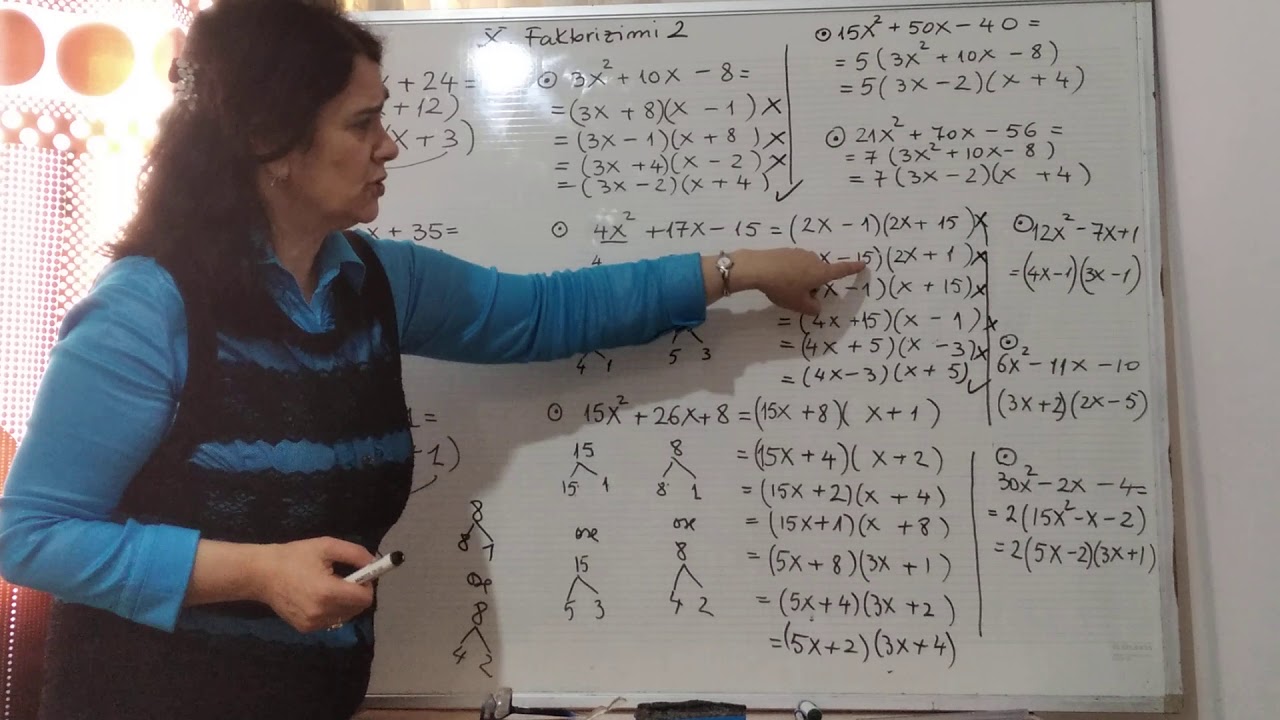 X Faktorizimi 2
x + 24 =
x + 12)
(x + 3)
x + 35 =
1 =
- 1)
8
8 1
Ose
8
4 2
⊙ 3x² + 10x - 8 =
= (3x + 8)(x - 1) X
= (3x - 1)(x + 8) X
= (3x + 4)(x - 2) X
= (3x - 2)(x + 4) ✓
⊙ 15x² + 50x - 40 =
= 5(3x² + 10x - 8)
= 5(3x - 2)(x + 4)
⊙ 21x² + 70x - 56 =
= 7(3x² + 10x - 8)
= 7(3x - 2)(x + 4)
⊙ 4x² + 17x - 15 = (2x - 1)(2x + 15) X
x - 15)(2x + 1) X
x - 1)(x + 15) X
= (4x + 15)(x - 1) X
= (4x + 5)(x - 3) X
= (4x - 3)(x + 5) ✓
4
4 1
5 3
⊙ 12x² - 7x + 1
= (4x - 1)(3x - 1)
⊙
6x² - 11x - 10
(3x + 2)(2x - 5)
⊙ 15x² + 26x + 8 = (15x + 8)(x + 1)
= (15x + 4)(x + 2)
= (15x + 2)(x + 4)
= (15x + 1)(x + 8)
= (5x + 8)(3x + 1)
= (5x + 4)(3x + 2)
= (5x + 2)(3x + 4)
15 8
15 1 8 1
ose ose
15 8
5 3 4 2
⊙
30x² - 2x - 4 =
= 2(15x² - x - 2)
= 2(5x - 2)(3x + 1)